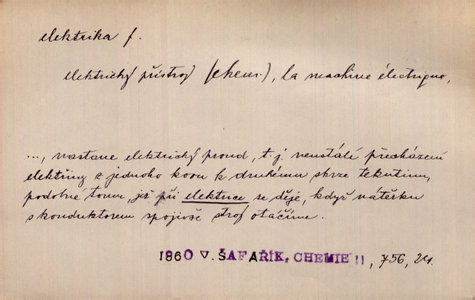 elektrika f.
elektrický přístroj (chem.), la machine électrique,
..., nastane elektrický proud, t. j. neustálé přecházení
elektřiny z jednoho kovu k druhému skrze tekutinu,
podobně tomu, jež při elektrice se děje, když nátěrku
s konduktorem spojivše stroj otáčíme.
1860 V. ŠAFAŘÍK, CHEMIE II, 756, 24.